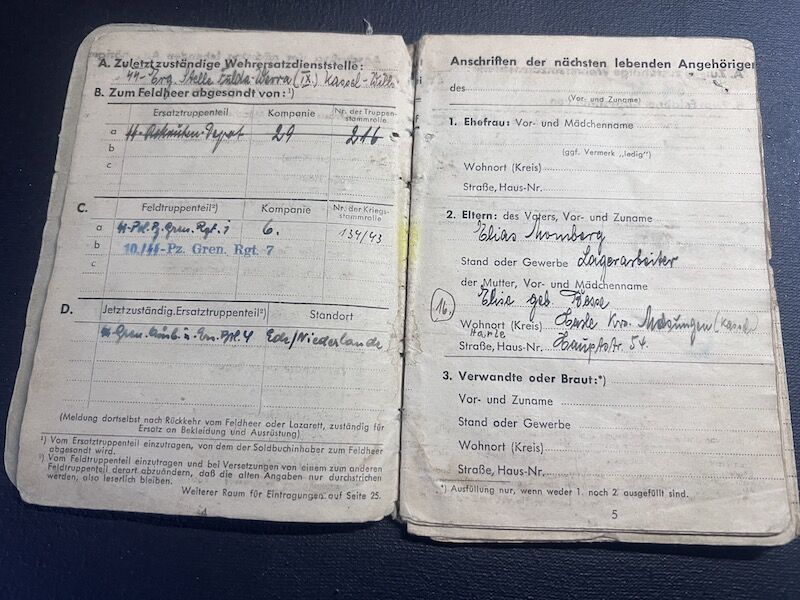 A. Zuletzt zuständige Wehrersatzdienststelle:
Erg. Stelle Fulda-Werra (IX.) Kassel-
B. Zum Feldheer abgesandt von:¹)
Ersatztruppenteil Kompanie Nr. der Truppen-
stammrolle
a 29 216
b
c
C. Feldtruppenteil²) Kompanie Nr. der Kriegs-
stammrolle
a Gren. Rgt. 6. 134/43
b 10/SS-Pz. Gren. Rgt. 7
c
D. Jetzt zuständig. Ersatztruppenteil²) Standort
Ede/Niederlande
(Meldung dortselbst nach Rückkehr vom Feldheer oder Lazarett, zuständig für
Ersatz an Bekleidung und Ausrüstung)
¹) Vom Ersatztruppenteil einzutragen, von dem der Soldbuchinhaber zum Feldheer
abgesandt wird.
²) Vom Feldtruppenteil einzutragen und bei Versetzungen von einem zum anderen
Feldtruppenteil derart abzuändern, daß die alten Angaben nur durchstrichen
werden, also leserlich bleiben.
Weiterer Raum für Eintragungen auf Seite 25.
4
Anschriften der nächsten lebenden Angehörigen
des
(Vor- und Zuname)
1. Ehefrau: Vor- und Mädchenname
(ggf. Vermerk „ledig")
Wohnort (Kreis)
Straße, Haus-Nr.
2. Eltern: des Vaters, Vor- und Zuname
Elias Momberg
Stand oder Gewerbe Lagerarbeiter
der Mutter, Vor- und Mädchenname
Elise geb.
16.
Wohnort (Kreis) Harle Krs. Melsungen (Kassel)
Harle
Straße, Haus-Nr. Hauptstr. 54.
3. Verwandte oder Braut:*)
Vor- und Zuname
Stand oder Gewerbe
Wohnort (Kreis)
Straße, Haus-Nr.
*) Ausfüllung nur, wenn weder 1. noch 2. ausgefüllt sind.
5